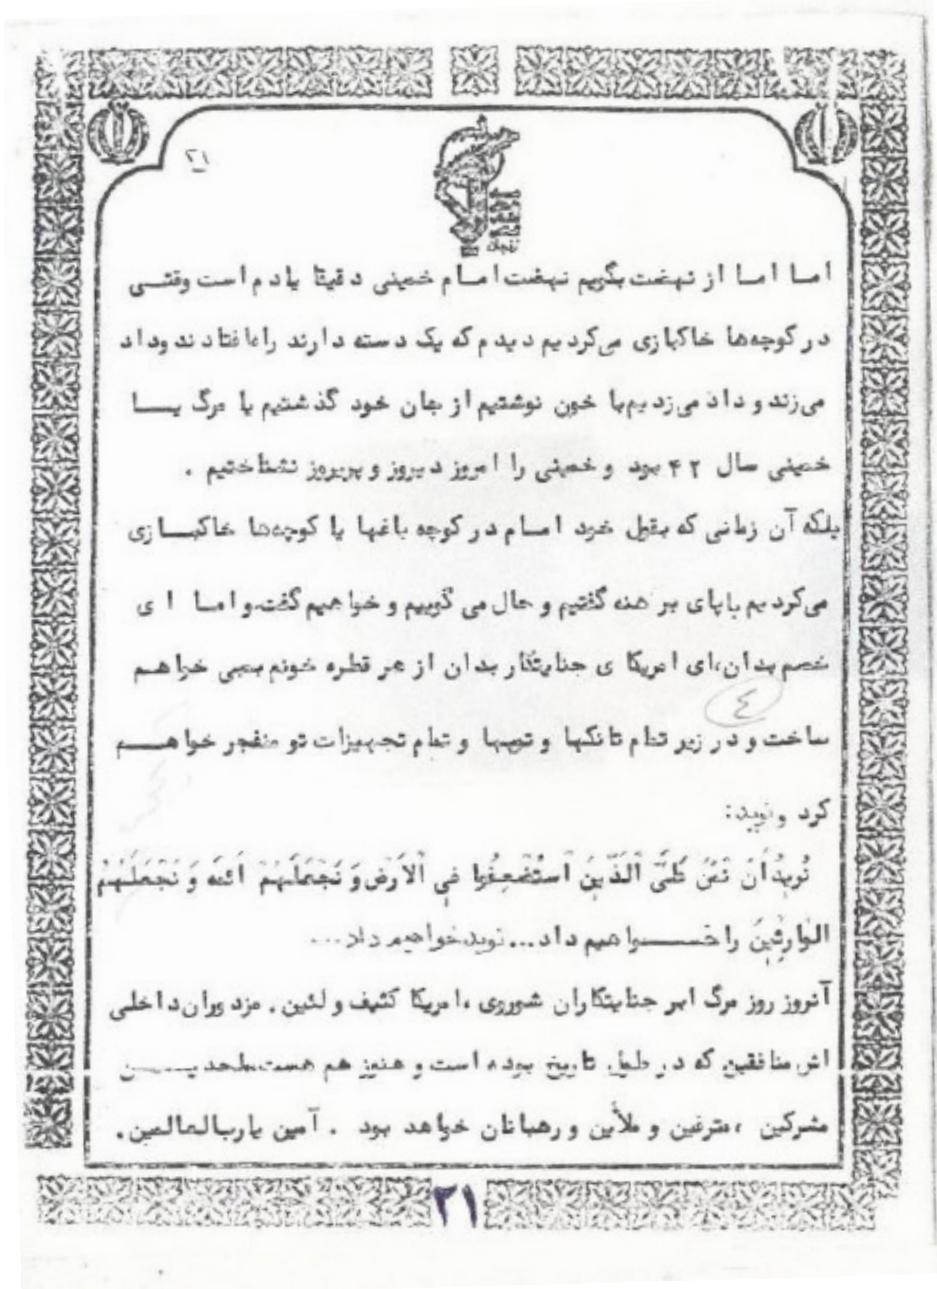 ۲۱
زنجان
اما اما از نهضت بگویم نهضت امام خمینی دقیقا یادم است وقتی
در کوچه‌ها خاکبازی می‌کردیم دیدم که یک دسته دارند راه افتادند و داد
می‌زنند و داد می‌زدیم با خون نوشتیم از جان خود گذشتیم یا مرگ یا
خمینی سال ۴۲ بود و خمینی را امروز دیروز و پریروز نشناختیم .
بلکه آن زمانی که بقول خود امام در کوچه باغها یا کوچه‌ها خاکبازی
می‌کردیم باپای برهنه گفتیم و حال می گوییم و خواهیم گفت و اما ای
خصم بدان،ای امریکا ی جنایتکار بدان از هر قطره خونم بمبی خواهم
٤
ساخت و در زیر تمام تانکها و توپها و تمام تجهیزات تو منفجر خواهم
کرد و نوید:
نُریدُ اَن نَمُنَّ عَلَی الَّذینَ استُضعِفُوا فِی الاَرضِ وَ نَجعَلَهُم ائمه وَ نَجعَلَهُمُ
الوارِثینَ را خواهیم داد... نوید خواهیم داد...
آنروز روز مرگ ابر جنایتکاران شوروی ،امریکا کثیف و لئین. مزدوران داخلی
اش منافقین که در طول تاریخ بوده است و هنوز هم هست ملحدین
مشرکین ،مترفین و ملأین و رهبانان خواهد بود . آمین یارب‌العالمین.
۲۱